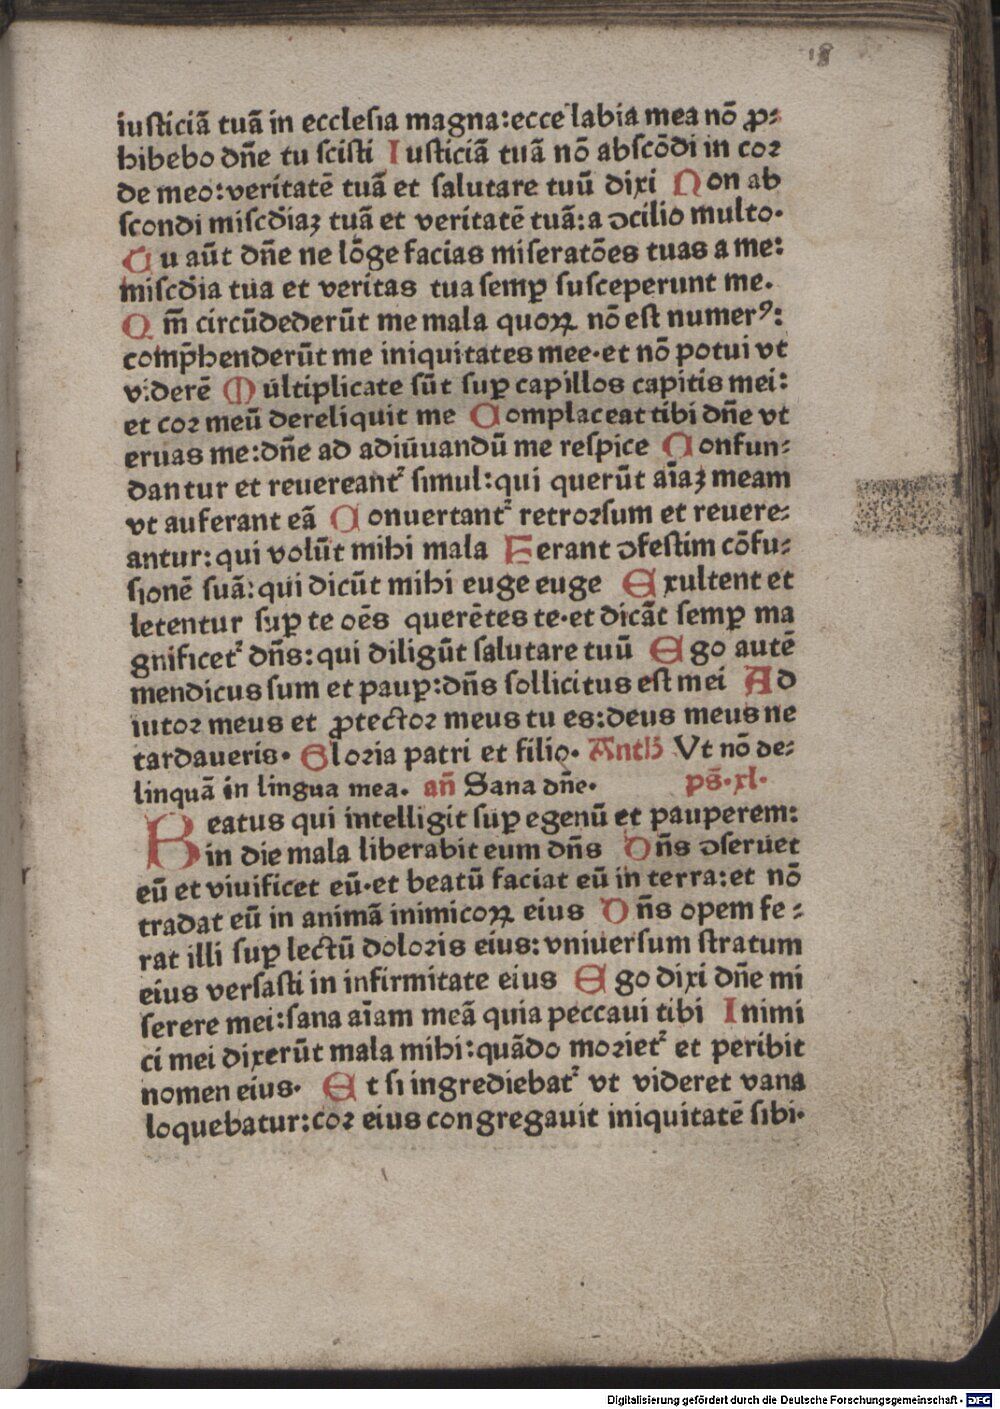 18
iusticiā tuā in ecclesia magna:ecce labia mea nō ꝓ⸗
hibebo dñe tu scisti Iusticiā tuā nō abscōdi in cor
de meo:veritatē tuā et salutare tuū dixi Non ab
scondi miscdiaꝫ tuā et veritatē tuā:a ꝯcilio multo·
Tu aūt dñe ne lōge facias miseratōes tuas a me:
miscdia tua et veritas tua semꝑ susceperunt me.
Qm̄ circūdederūt me mala quoꝝ nō est numerꝰ:
comp̄henderūt me iniquitates mee·et nō potui vt
viderē Multiplicate sūt suꝑ capillos capitis mei:
et cor meū dereliquit me Complaceat tibi dñe vt
eruas me:dñe ad adiuuandū me respice Confun⸗
dantur et reuereant᷑ simul:qui querūt aīaꝫ meam
vt auferant eā Conuertant᷑ retrorsum et reuere⸗
antur:qui volūt mihi mala Ferant ꝯfestim cōfu⸗
sionē suā:qui dicūt mihi euge euge Exultent et
letentur suꝑ te oēs querētes te·et dicāt semꝑ ma
gnificet᷑ dñs:qui diligūt salutare tuū Ego autē
mendicus sum et pauꝑ:dñs sollicitus est mei Ad
iutor meus et ꝓtector meus tu es:deus meus ne
tardaueris· Gloria patri et filio. Vt nō de⸗
linquā in lingua mea. añ Sana dñe. ps̄·xl·
Beatus qui intelligit suꝑ egenū et pauperem:
in die mala liberabit eum dñs Dñs ꝯseruet
eū et viuificet eū·et beatū faciat eū in terra:et nō
tradat eū in animā inimicoꝝ eius Dñs opem fe⸗
rat illi suꝑ lectū doloris eius:vniuersum stratum
eius versasti in infirmitate eius Ego dixi dñe mi
serere mei:sana aīam meā quia peccaui tibi Inimi
ci mei dixerūt mala mihi:quādo moriet᷑ et peribit
nomen eius· Et si ingrediebat᷑ vt videret vana
loquebatur:cor eius congregauit iniquitatē sibi·
Digitalisierung gefördert durch die Deutsche Forschungsgemeinschaft - DFG